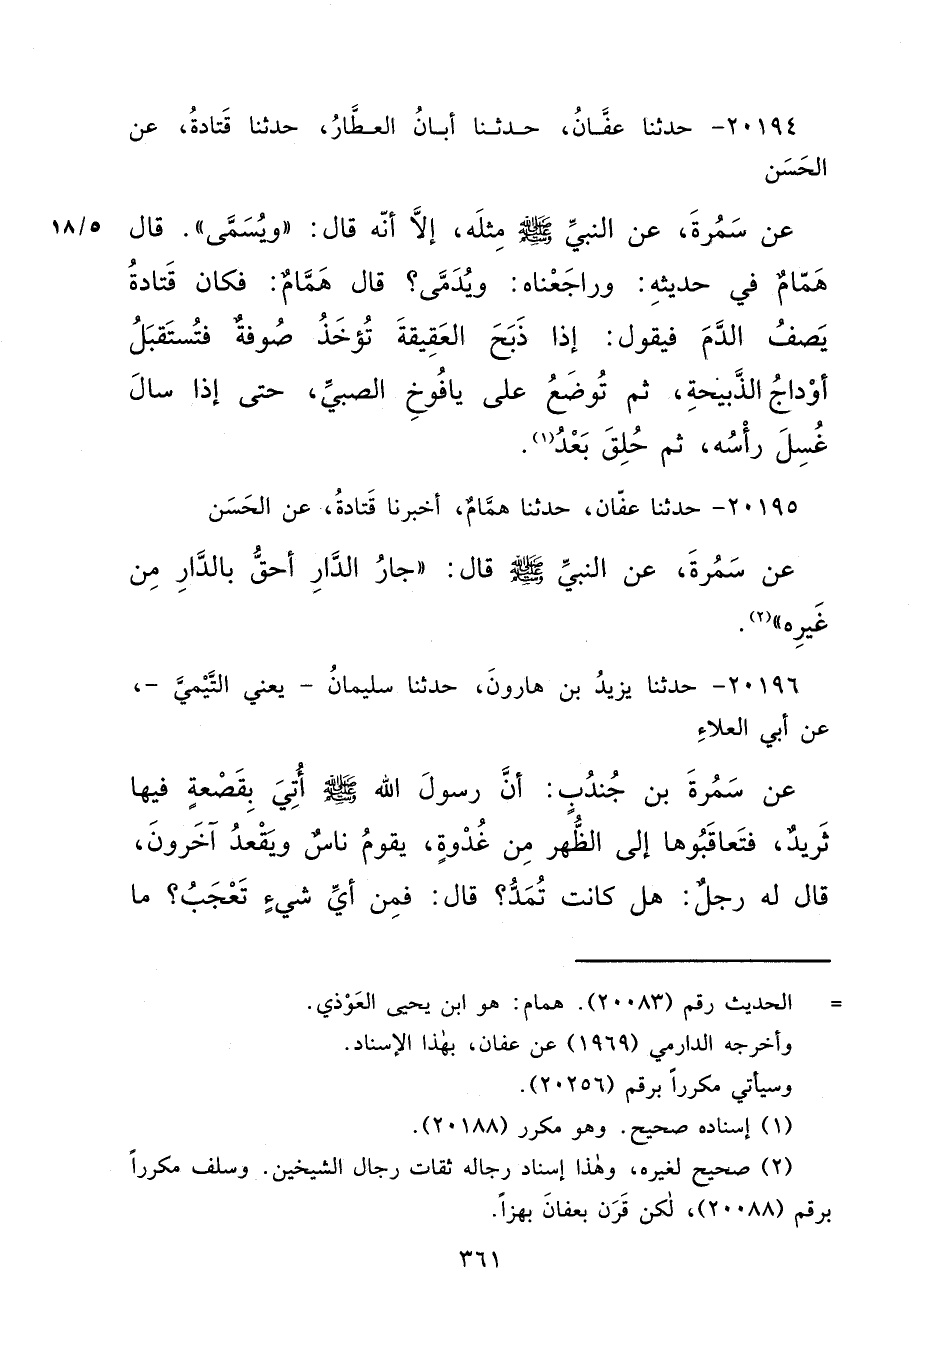 ٢٠١٩٤- حدثنا عفَّـانُ، حـدثـنا أبـانُ العـطَّارُ، حدثنا قَتادةُ، عن
الحَسَن
عن سَمُرةَ، عن النبيِّ ﷺ مِثلَه، إلاَّ أنّه قال: «ويُسَمَّى». قال ١٨/٥
هَمّامٌ في حديثهِ: وراجَعْناه: ويُدَمَّى؟ قال هَمَّامٌ: فكان قَتادةُ
يَصفُ الدَّمَ فيقول: إذا ذَبَحَ العَقِيقةَ تُؤخَذُ صُوفةٌ فتُستَقبَلُ
أوْداجُ الذَّبيحةِ، ثم تُوضَعُ على يافُوخِ الصبيِّ، حتى إذا سالَ
غُسِلَ رأْسُه، ثم حُلِقَ بَعْدُ(١).
٢٠١٩٥- حدثنا عفّان، حدثنا همَّامٌ، أخبرنا قَتادةُ، عن الحَسَن
عن سَمُرةَ، عن النبيِّ ﷺ قال: «جارُ الدَّارِ أحقُّ بالدَّارِ مِن
غَيرِه»(٢).
٢٠١٩٦- حدثنا يزيدُ بن هارونَ، حدثنا سليمانُ - يعني التَّيْميَّ -،
عن أبي العلاءِ
عن سَمُرةَ بن جُندُبٍ: أنَّ رسولَ الله ﷺ أُتِيَ بِقَصْعةٍ فيها
ثَريدٌ، فتَعاقَبُوها إلى الظُّهر مِن غُدْوةٍ، يقومُ ناسٌ ويَقْعدُ آخَرونَ،
قال له رجلٌ: هل كانت تُمَدُّ؟ قال: فمِن أيِّ شيءٍ تَعْجَبُ؟ ما
= الحديث رقم (٢٠٠٨٣). همام: هو ابن يحيى العَوْذي.
وأخرجه الدارمي (١٩٦٩) عن عفان، بهٰذا الإسناد.
وسيأتي مكرراً برقم (٢٠٢٥٦).
(١) إسناده صحيح. وهو مكرر (٢٠١٨٨).
(٢) صحيح لغيره، وهٰذا إسناد رجاله ثقات رجال الشيخين. وسلف مكرراً
برقم (٢٠٠٨٨)، لٰكن قَرَن بعفانَ بهزاً.
٣٦١